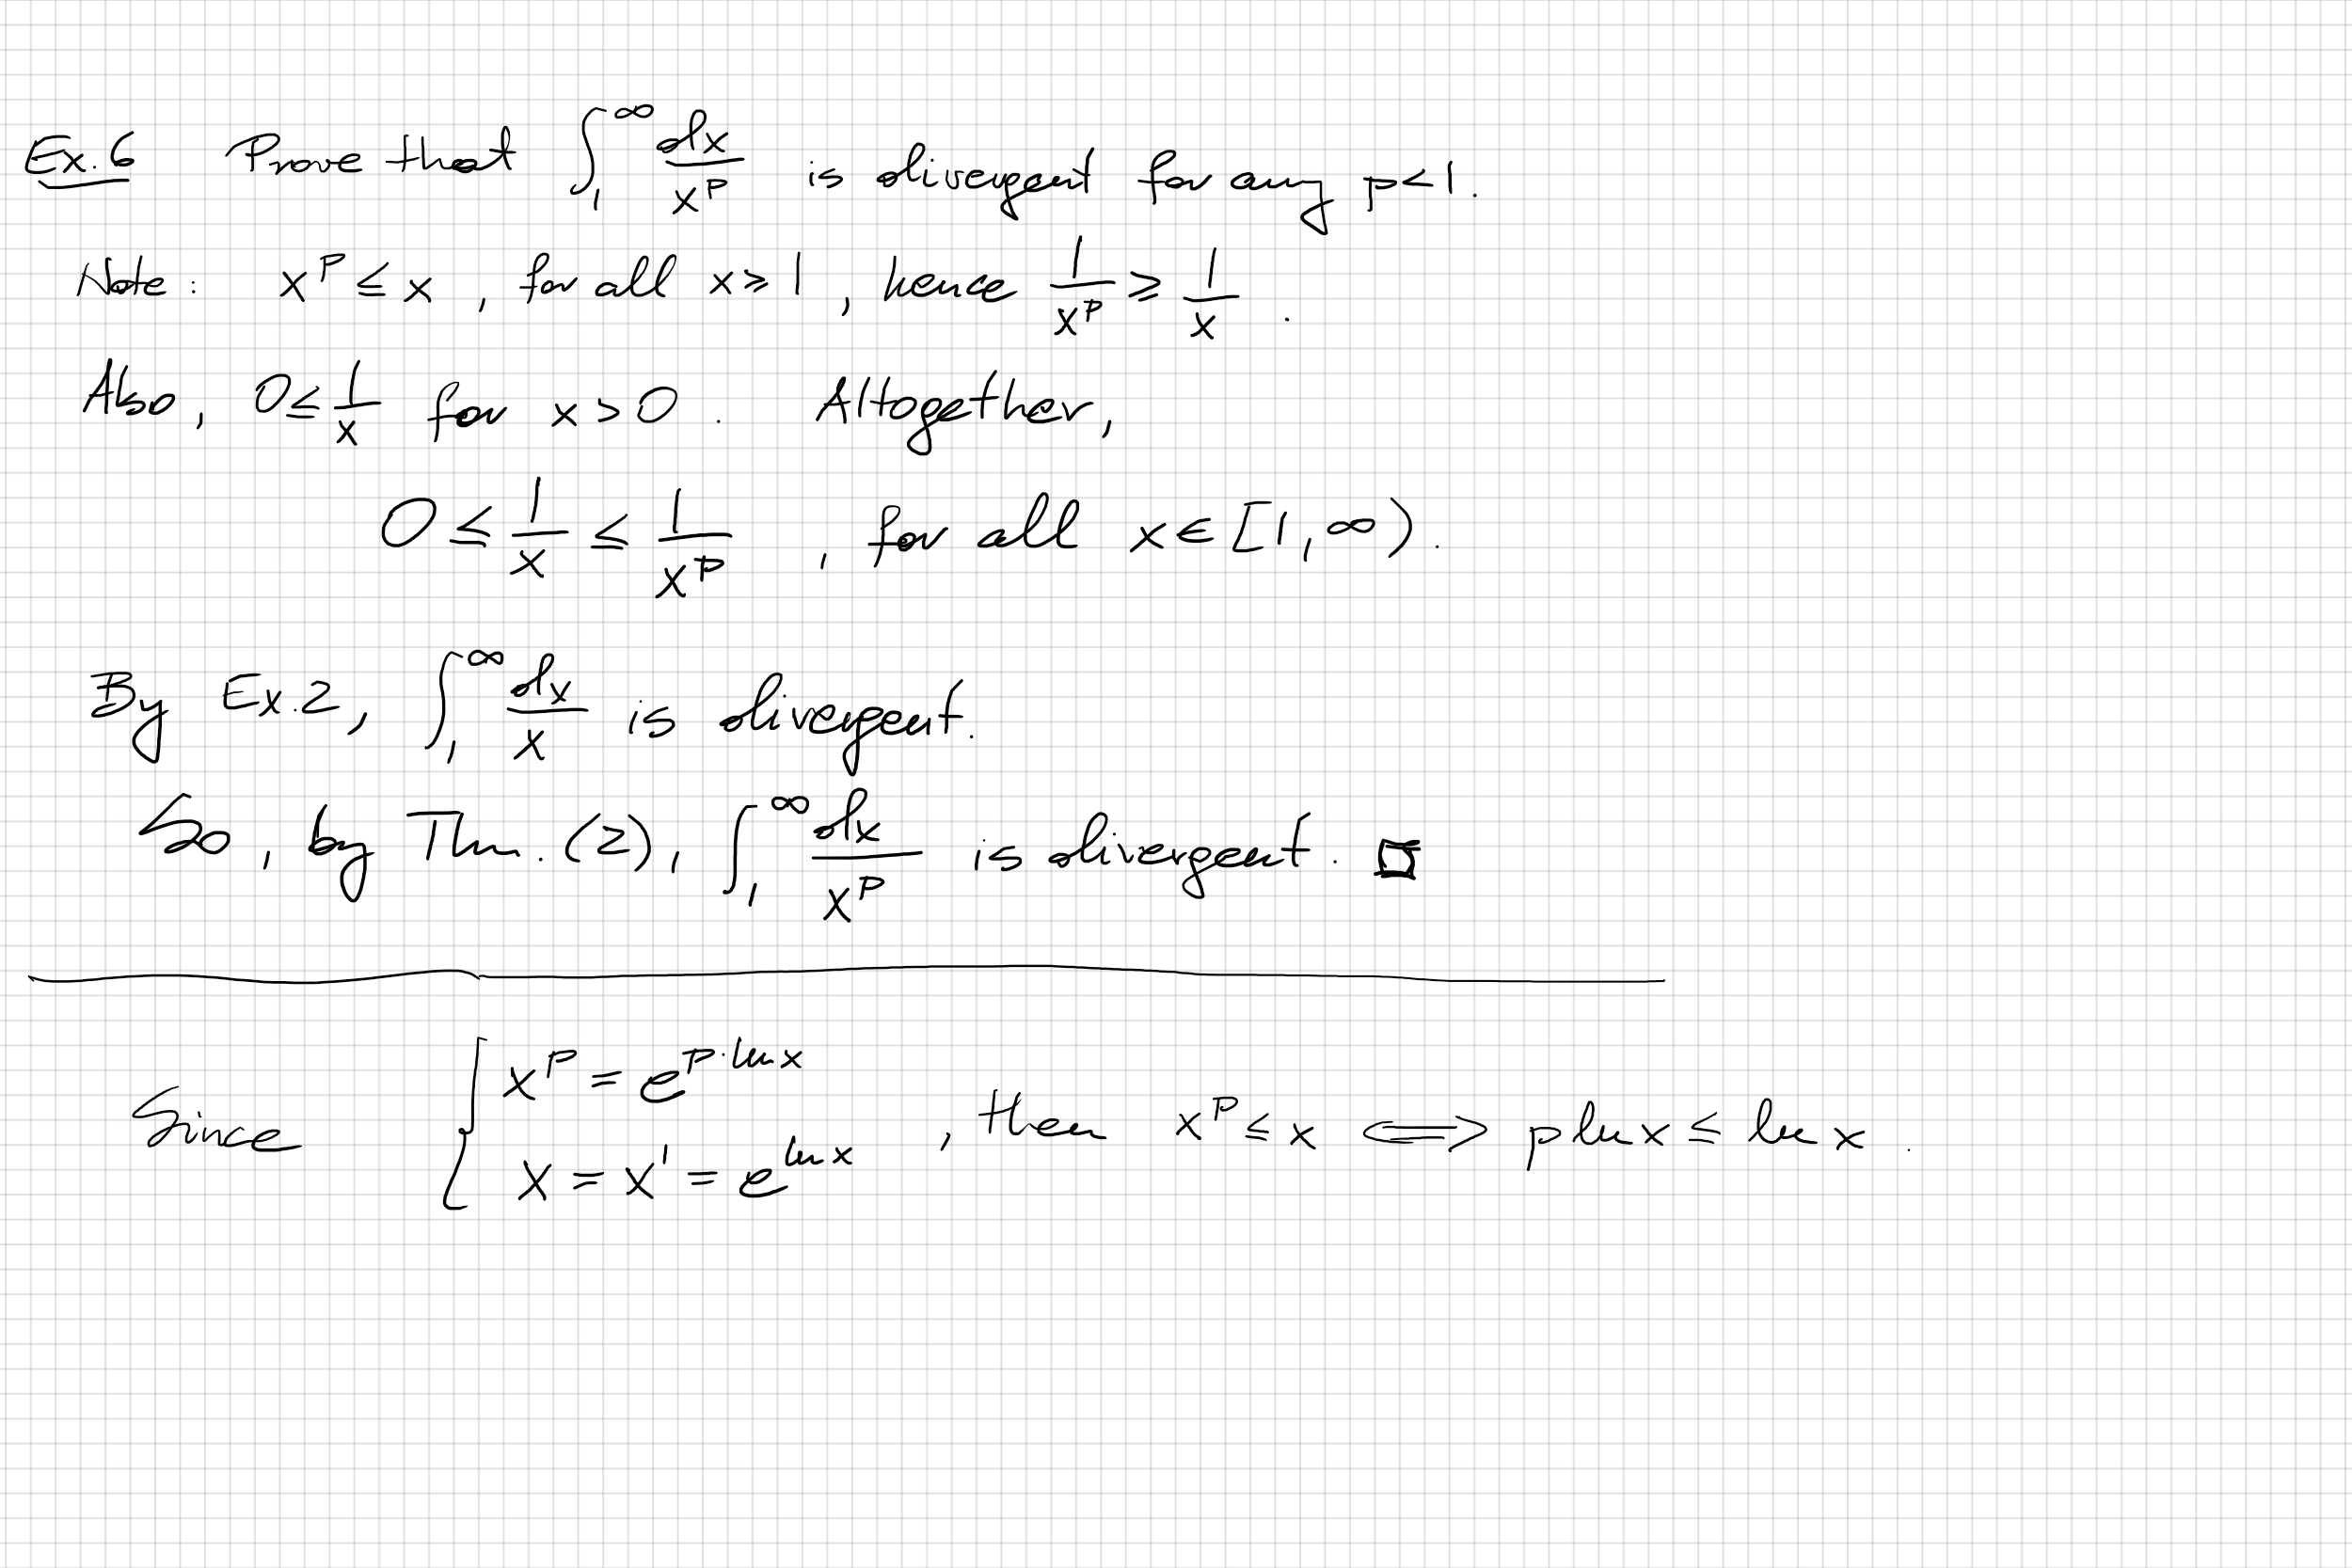 Ex. 6 Prove that ∫₁^∞ dx/x^p is divergent for any p<1.
Note: x^p ≤ x, for all x ≥ 1, hence 1/x^p ≥ 1/x.
Also, 0 ≤ 1/x for x > 0. Altogether,
0 ≤ 1/x ≤ 1/x^p, for all x ∈ [1, ∞).
By Ex. 2, ∫₁^∞ dx/x is divergent.
So, by Thm. (2), ∫₁^∞ dx/x^p is divergent. □
Since { x^p = e^{p·ln x}
x = x^1 = e^{ln x} , then x^p ≤ x ⟺ p ln x ≤ ln x.